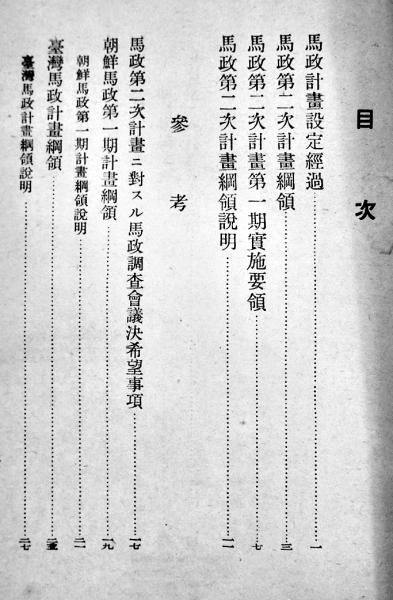 目次
馬政計畫設定經過……一
馬政第二次計畫綱領……三
馬政第二次計畫第一期實施要領……七
馬政第二次計畫綱領說明……一一
參考
馬政第二次計畫ニ對スル馬政調査會議決希望事項……一七
朝鮮馬政第一期計畫綱領……一九
朝鮮馬政第一期計畫綱領說明……二一
臺灣馬政計畫綱領……二五
臺灣馬政計畫綱領說明……二七